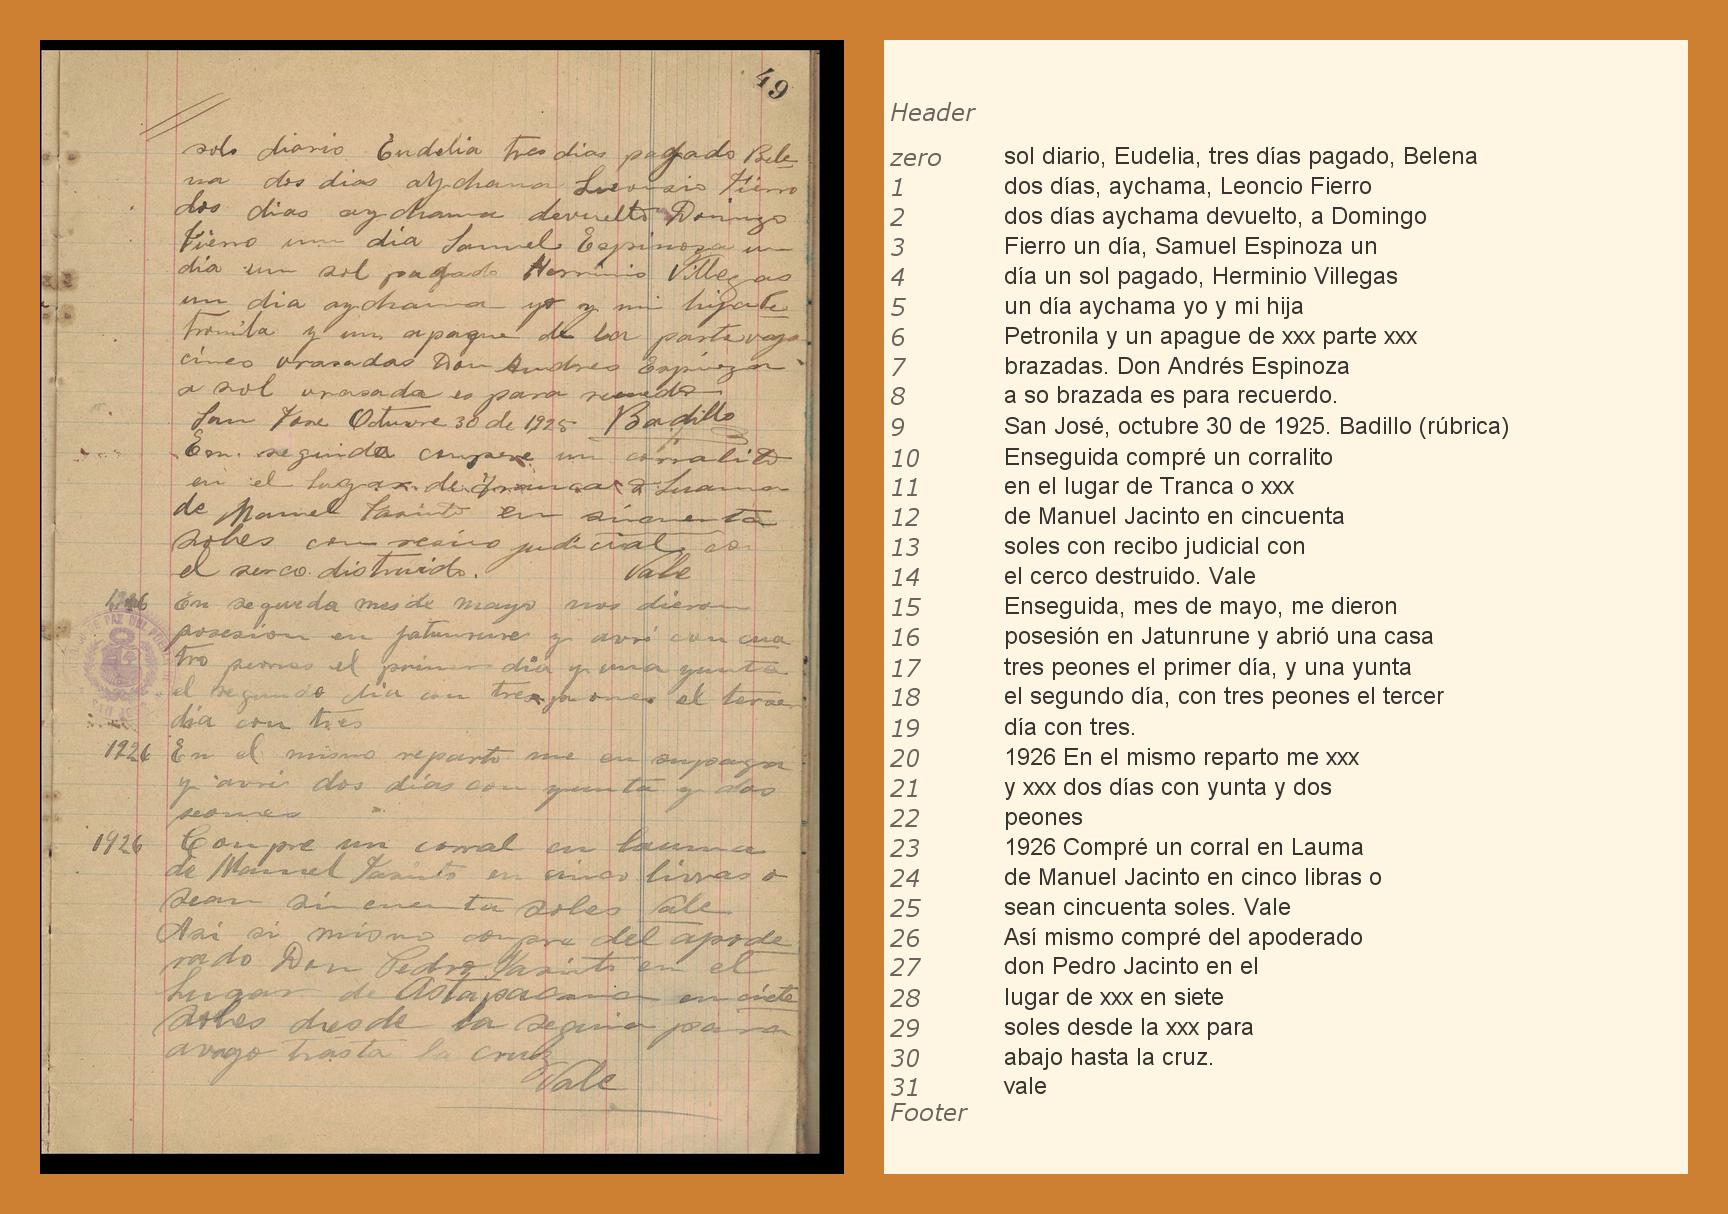 49
solo diario Eudelia tres dias pagado Bele
na dos dias aychama Fierro
dos dias aychama devuelto Domingo
Fierro un dia Samuel Espinoza un
dia un sol pagado Herminio Villegas
un dia aychama yo y mi hija Pe
tronila y un apague de la parte vaga
cinco vrasadas Don Andres Espinoza
a sol vrasada es para recuerdo
San Jose Octuvre 30 de 1925 Badillo
En seguida compre un corralito
en el lugar de
de Manuel Jasinto en sincuenta
Soles con resivo judicial co
el serco distruido. Vale
1926 En seguida mes de mayo nos dieron
posesion en jatunrune y avri con cua
tro peones el primer dia y una yunta
el segundo dia con tres peones el tercer
dia con tres
1926 En el mismo reparto me
y avri dos días con yunta y dos
peones
1926 Compre un corral en Lauma
de Manuel Jasinto en cinco livras o
sean sincuenta soles Vale
Asi si mismo compre del apode
rado Don Pedro Jasinto en el
lugar de en ciete
Soles desde la para
avago hasta la cruz
Vale
Header
zero sol diario, Eudelia, tres días pagado, Belena
1 dos días, aychama, Leoncio Fierro
2 dos días aychama devuelto, a Domingo
3 Fierro un día, Samuel Espinoza un
4 día un sol pagado, Herminio Villegas
5 un día aychama yo y mi hija
6 Petronila y un apague de xxx parte xxx
7 brazadas. Don Andrés Espinoza
8 a so brazada es para recuerdo.
9 San José, octubre 30 de 1925. Badillo (rúbrica)
10 Enseguida compré un corralito
11 en el lugar de Tranca o xxx
12 de Manuel Jacinto en cincuenta
13 soles con recibo judicial con
14 el cerco destruido. Vale
15 Enseguida, mes de mayo, me dieron
16 posesión en Jatunrune y abrió una casa
17 tres peones el primer día, y una yunta
18 el segundo día, con tres peones el tercer
19 día con tres.
20 1926 En el mismo reparto me xxx
21 y xxx dos días con yunta y dos
22 peones
23 1926 Compré un corral en Lauma
24 de Manuel Jacinto en cinco libras o
25 sean cincuenta soles. Vale
26 Así mismo compré del apoderado
27 don Pedro Jacinto en el
28 lugar de xxx en siete
29 soles desde la xxx para
30 abajo hasta la cruz.
31 vale
Footer